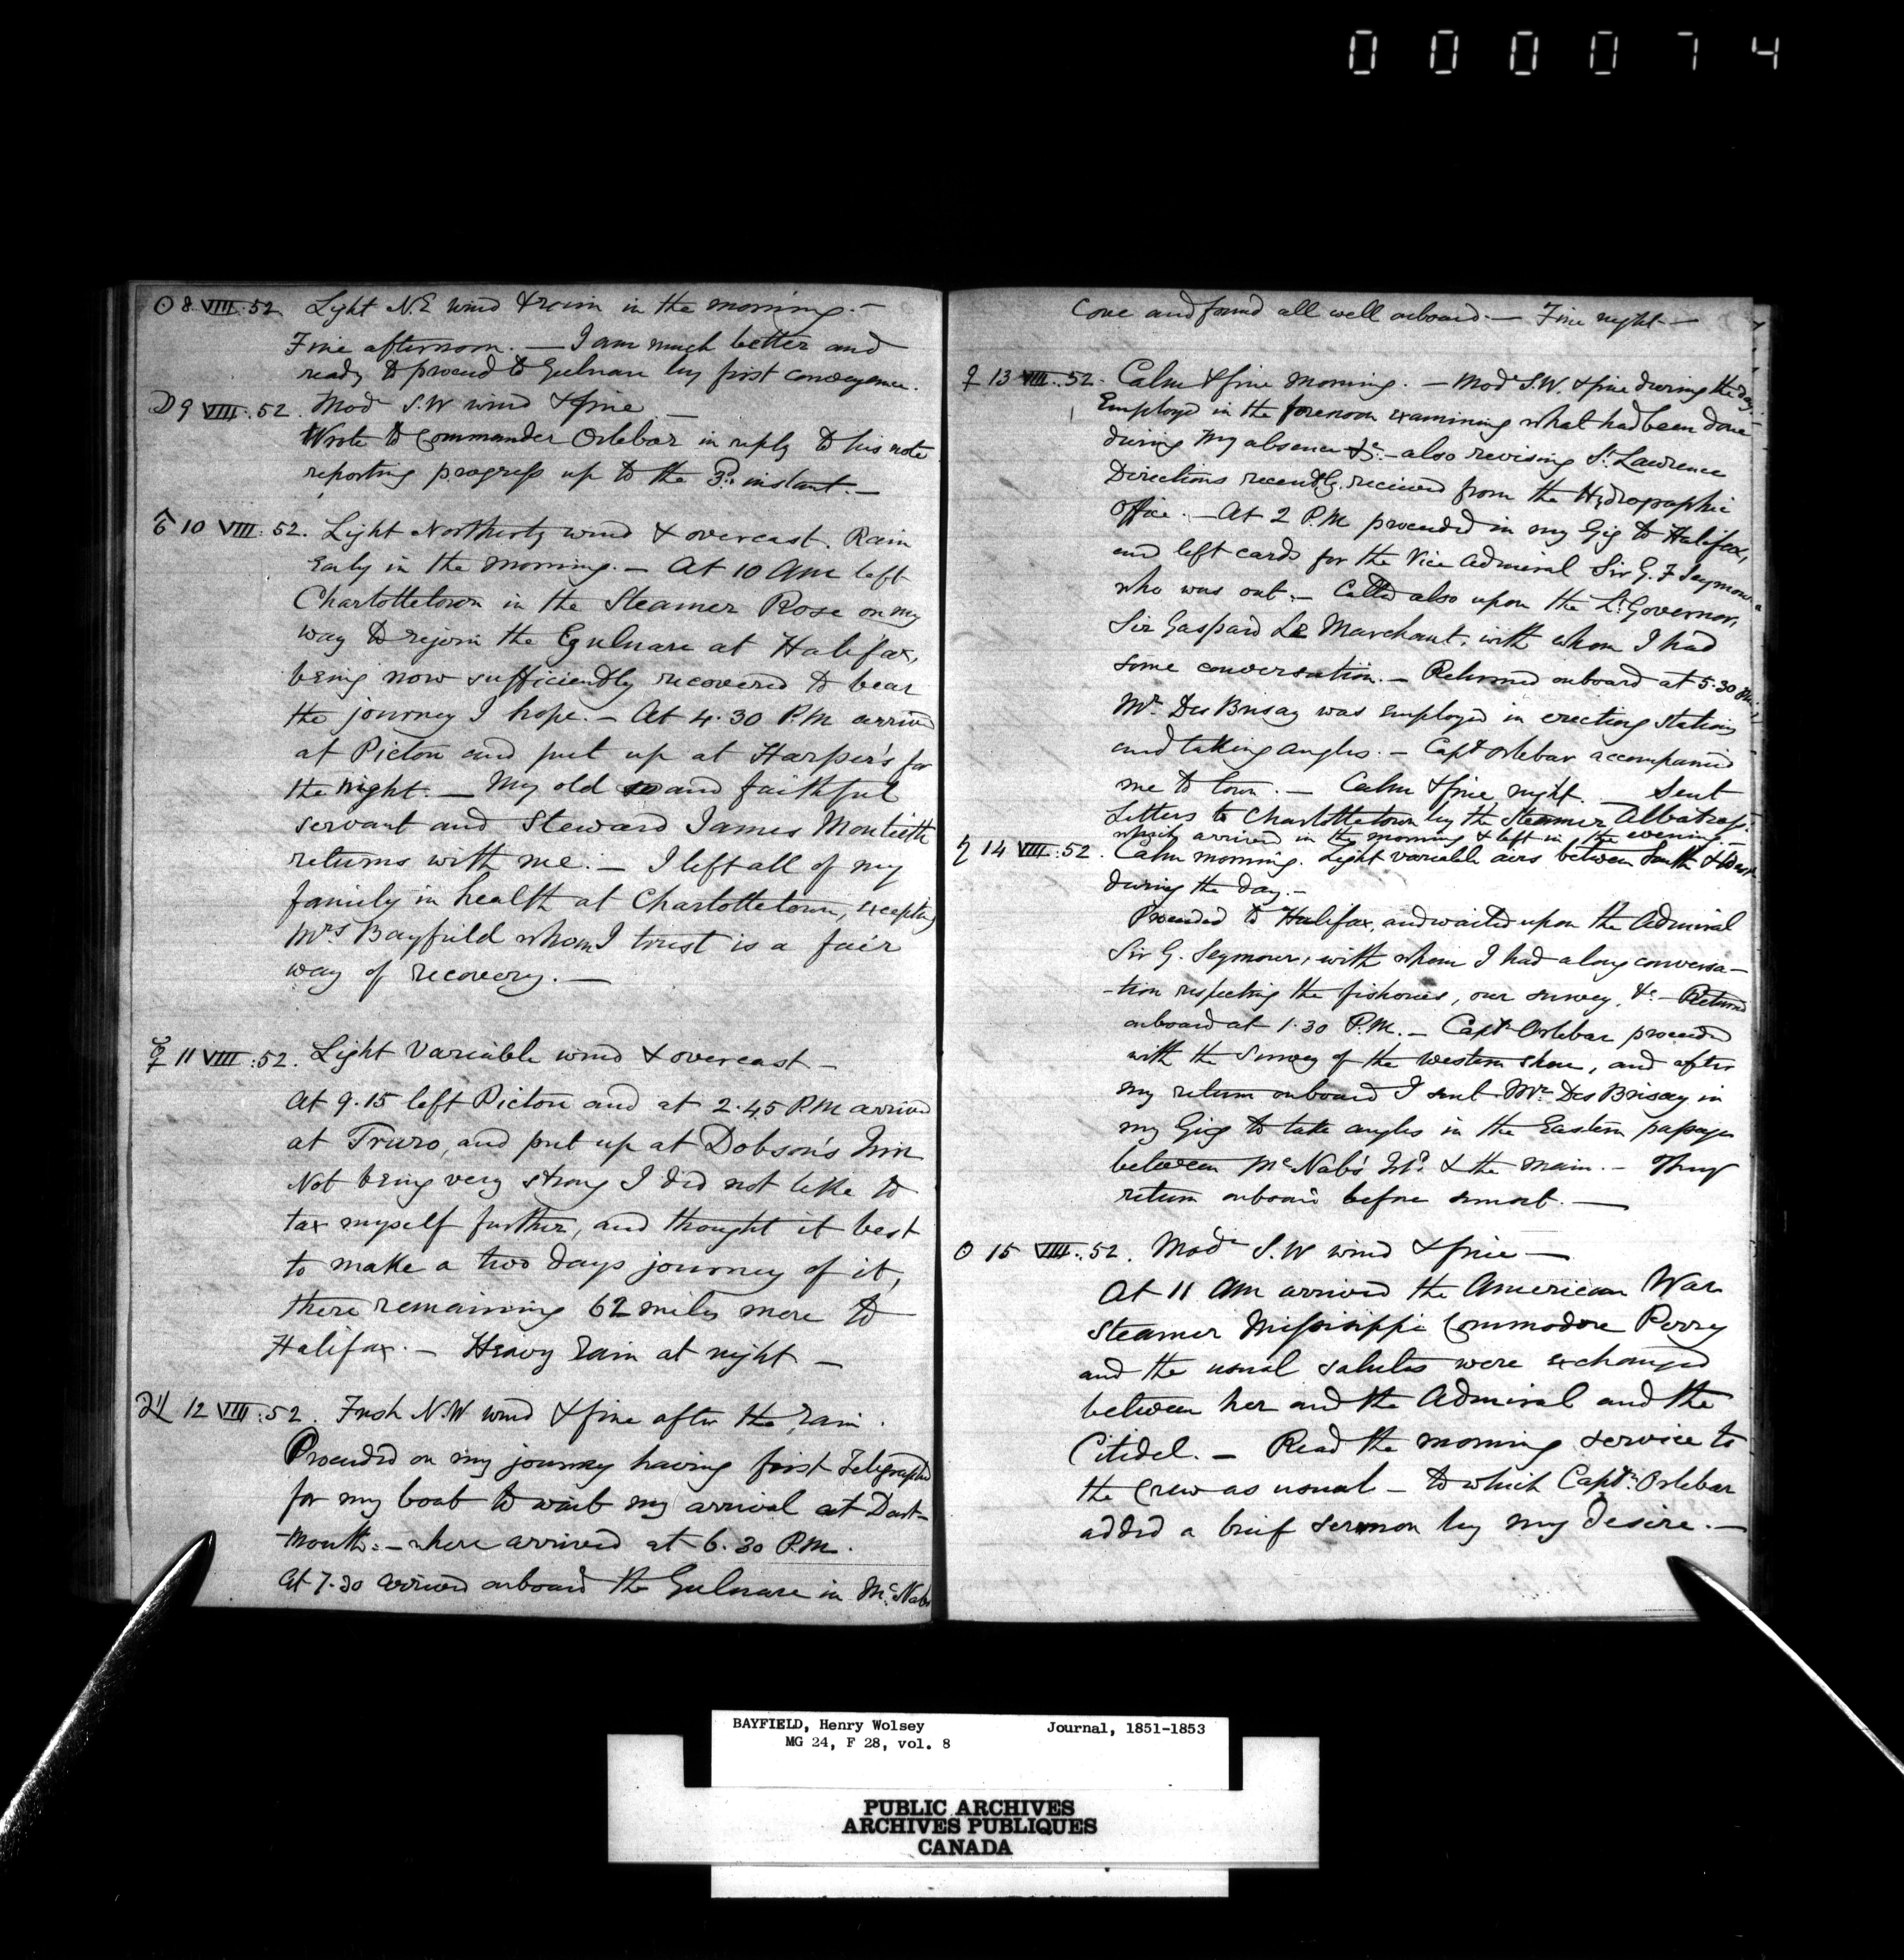 000074
☉ 8 VIII:52 Light N.E wind & rain in the morning.—
Fine afternoon.— I am much better and
ready to proceed to Gulnare by first conveyance.
☽ 9 VIII:52. Modᵉ S.W wind & fine.—
Wrote to Commander Orlebar in reply to his note
reporting progress up to the 3ᵈ instant.—
♂ 10 VIII:52. Light Northerly wind & overcast. Rain
Early in the morning.— At 10 AM left
Charlottetown in the Steamer Rose on my
way to rejoin the Gulnare at Halifax,
being now sufficiently recovered to bear
the journey I hope.— At 4.30 P.M arrived
at Pictou and put up at Harper's for
the night.— My old and faithful
servant and Steward James Montieth
returns with me.— I left all of my
family in health at Charlottetown, excepting
Mrs Bayfield whom I trust is a fair
way of recovery.—
☿ 11 VIII:52. Light Variable wind & overcast—
At 9.15 left Pictou and at 2.45 P.M arrived
at Truro, and put up at Dobson's Inn
Not being very strong I did not like to
tax myself further, and thought it best
to make a two days journey of it,
there remaining 62 miles more to
Halifax.— Heavy Rain at night—
♃ 12 VIII:52. Fresh N.W wind & fine after the rain.
Proceeded on my journey having first Telegraphed
for my boat to wait my arrival at Dart-
-mouth.— where arrived at 6.30 P.M.
At 7.30 arrived onboard the Gulnare in McNabs
Cove and found all well onboard.— Fine night.—
♀ 13 VIII:52. Calm & fine morning.— Modᵉ S.W. & fine during the day.
Employed in the forenoon examining what had been done
during my absence &c.— also revising St Lawrence
Directions recently received from the Hydrographic
Office.— At 2 P.M proceeded in my Gig to Halifax,
and left cards for the Vice Admiral Sir G. F Seymour
who was out.— Called also upon the Lt Governor,
Sir Gaspard Le Marchant, with whom I had
some conversation.— Returned onboard at 5.30 P.M.
Mr Des Brisay was employed in erecting Stations
and taking angles.— Capt Orlebar accompanied
me to town.— Calm & fine night. — Sent
Letters to Charlottetown by the Steamer Albatross.
which arrived in the morning & left in the evening.—
♄ 14 VIII:52. Calm morning. Light variable airs between South & West
during the day.—
Proceeded to Halifax, and waited upon the Admiral
Sir G. Seymour, with whom I had a long conversa-
-tion respecting the fisheries, our survey, &c— Returned
onboard at 1.30 P.M.— Captn Orlebar proceeded
with the Survey of the western shore, and after
my return onboard I sent Mr Des Brisay in
my Gig to take angles in the Eastern passage
between McNab's Isd & the main.— They
return onboard before sunset.—
☉ 15 VIII:52. Modᵉ S.W wind & fine—
At 11 AM arrived the American War
Steamer Missisippi Commodore Perry
and the usual salutes were exchanged
between her and the Admiral and the
Citidel.— Read the morning service to
the crew as usual— to which Captn Orlebar
added a brief sermon by my desire.—
BAYFIELD, Henry Wolsey Journal, 1851-1853
MG 24, F 28, vol. 8
PUBLIC ARCHIVES
ARCHIVES PUBLIQUES
CANADA